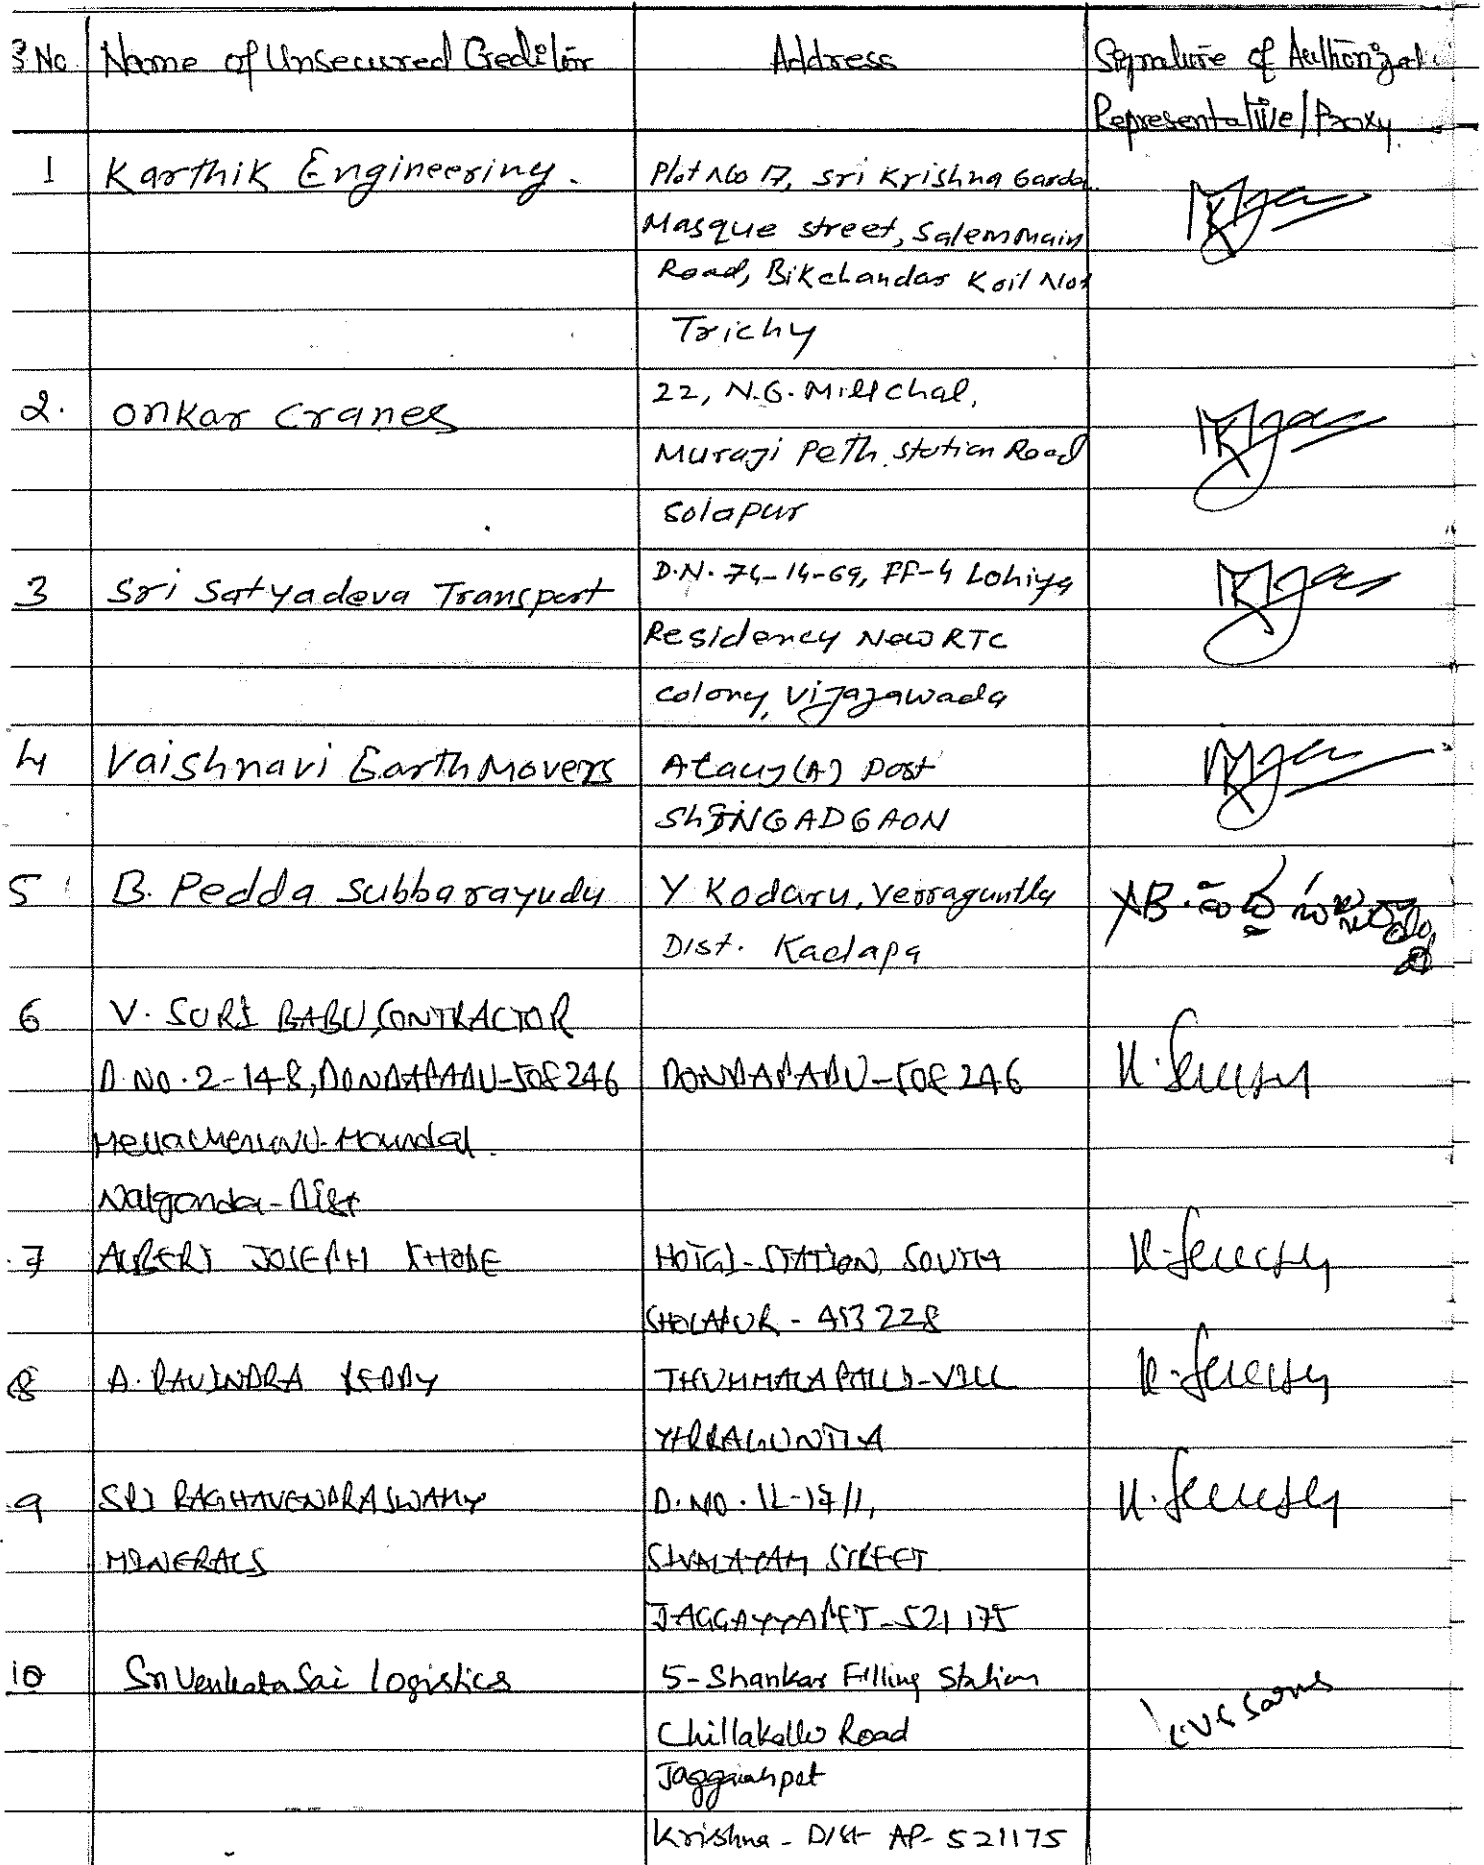 S No Name of Unsecured Creditor Address Signature of Authorized
Representative/Proxy
1 Karthik Engineering. Plot No 17, Sri Krishna Garden
Masque street, Salem Main
Road, Bikchandar Koil Not
Trichy
2. Onkar Cranes 22, N.G. Mill Chal,
Muraji Peth, Station Road
Solapur
3 Sri Satyadeva Transport D.N. 74-14-69, FF-4 Lohiya
Residency New RTC
Colony, Vijayawada
4 Vaishnavi Earth Movers (A) Post
ShINGADGAON
5 B. Pedda Subbarayudu Y Kodaru, Yerraguntla
Dist. Kadapa
6 V. SURI BABU, CONTRACTOR
D.NO. 2-148, DONDAPADU-508246 DONDAPADU-508246
Mellacheruvu-Mandal.
Nalgonda-Dist
7 ALBERT JOSEPH KHODE HOTGI-STATION, SOUTH
SHOLAPUR - 413228
8 A. RAVINDRA REDDY THUMMALAPALLI-VILL
YERRAGUNTLA
9 SRI RAGHAVENDRA SWAMY D.NO. 11-17/1,
MINERALS SIVALAYAM STREET
JAGGAYYAPET-521175
10 Sri Venkata Sai Logistics 5-Shankar Filling Station
Chillakallu Road
Jaggaiahpet
Krishna - Dist AP- 521175